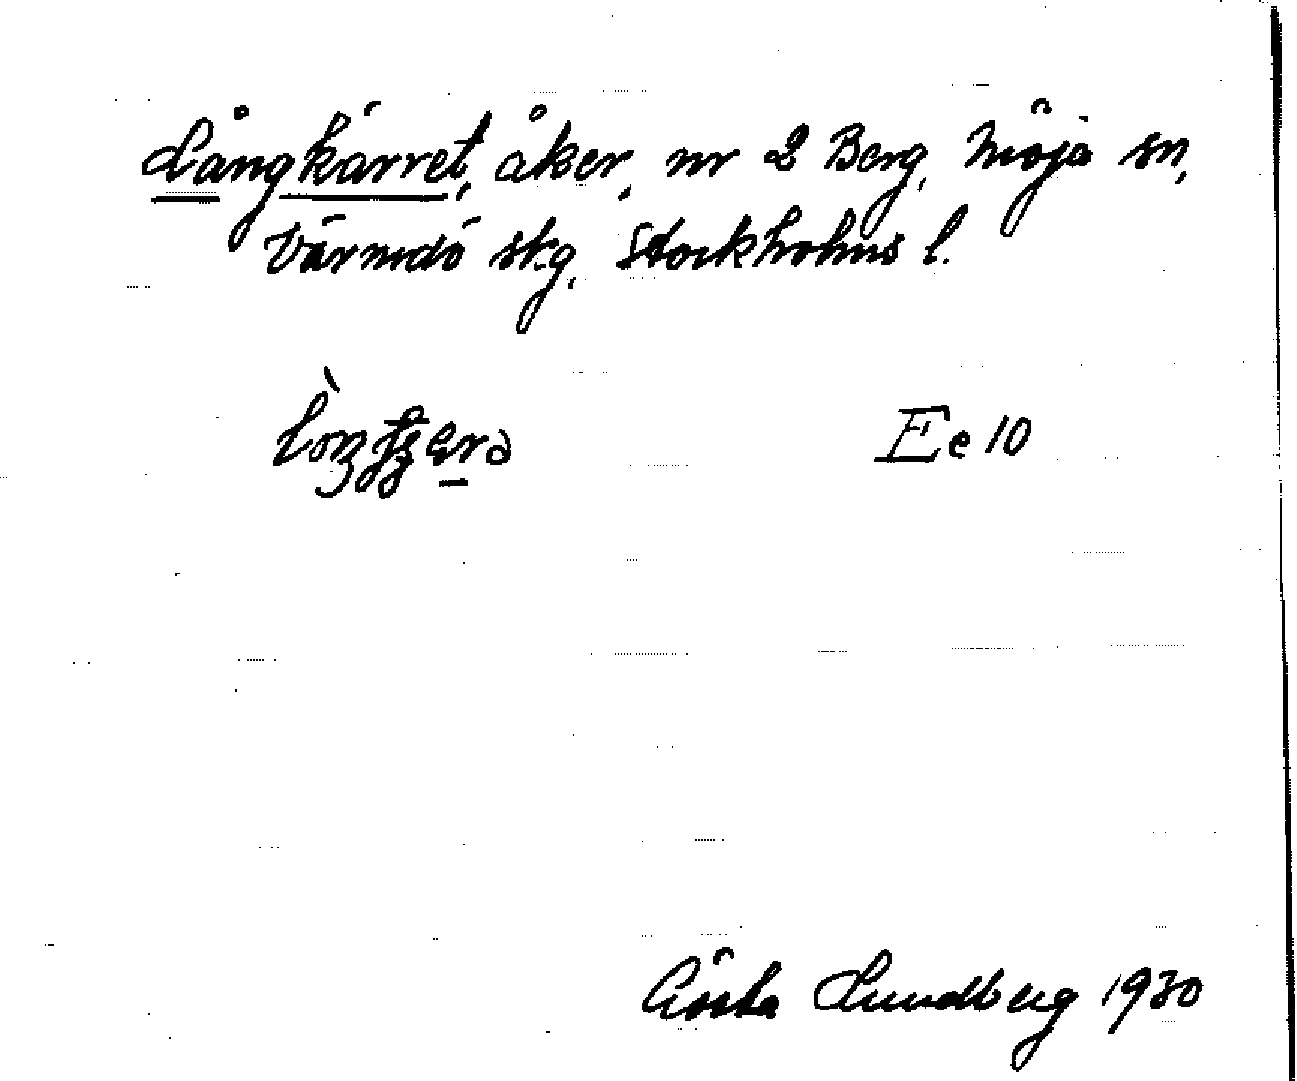 Långkärret, åker, nr 2 Berg, Möja sn,
Värmdö skg, Stockholms l.
Ee 10
Gösta Lundberg 1930